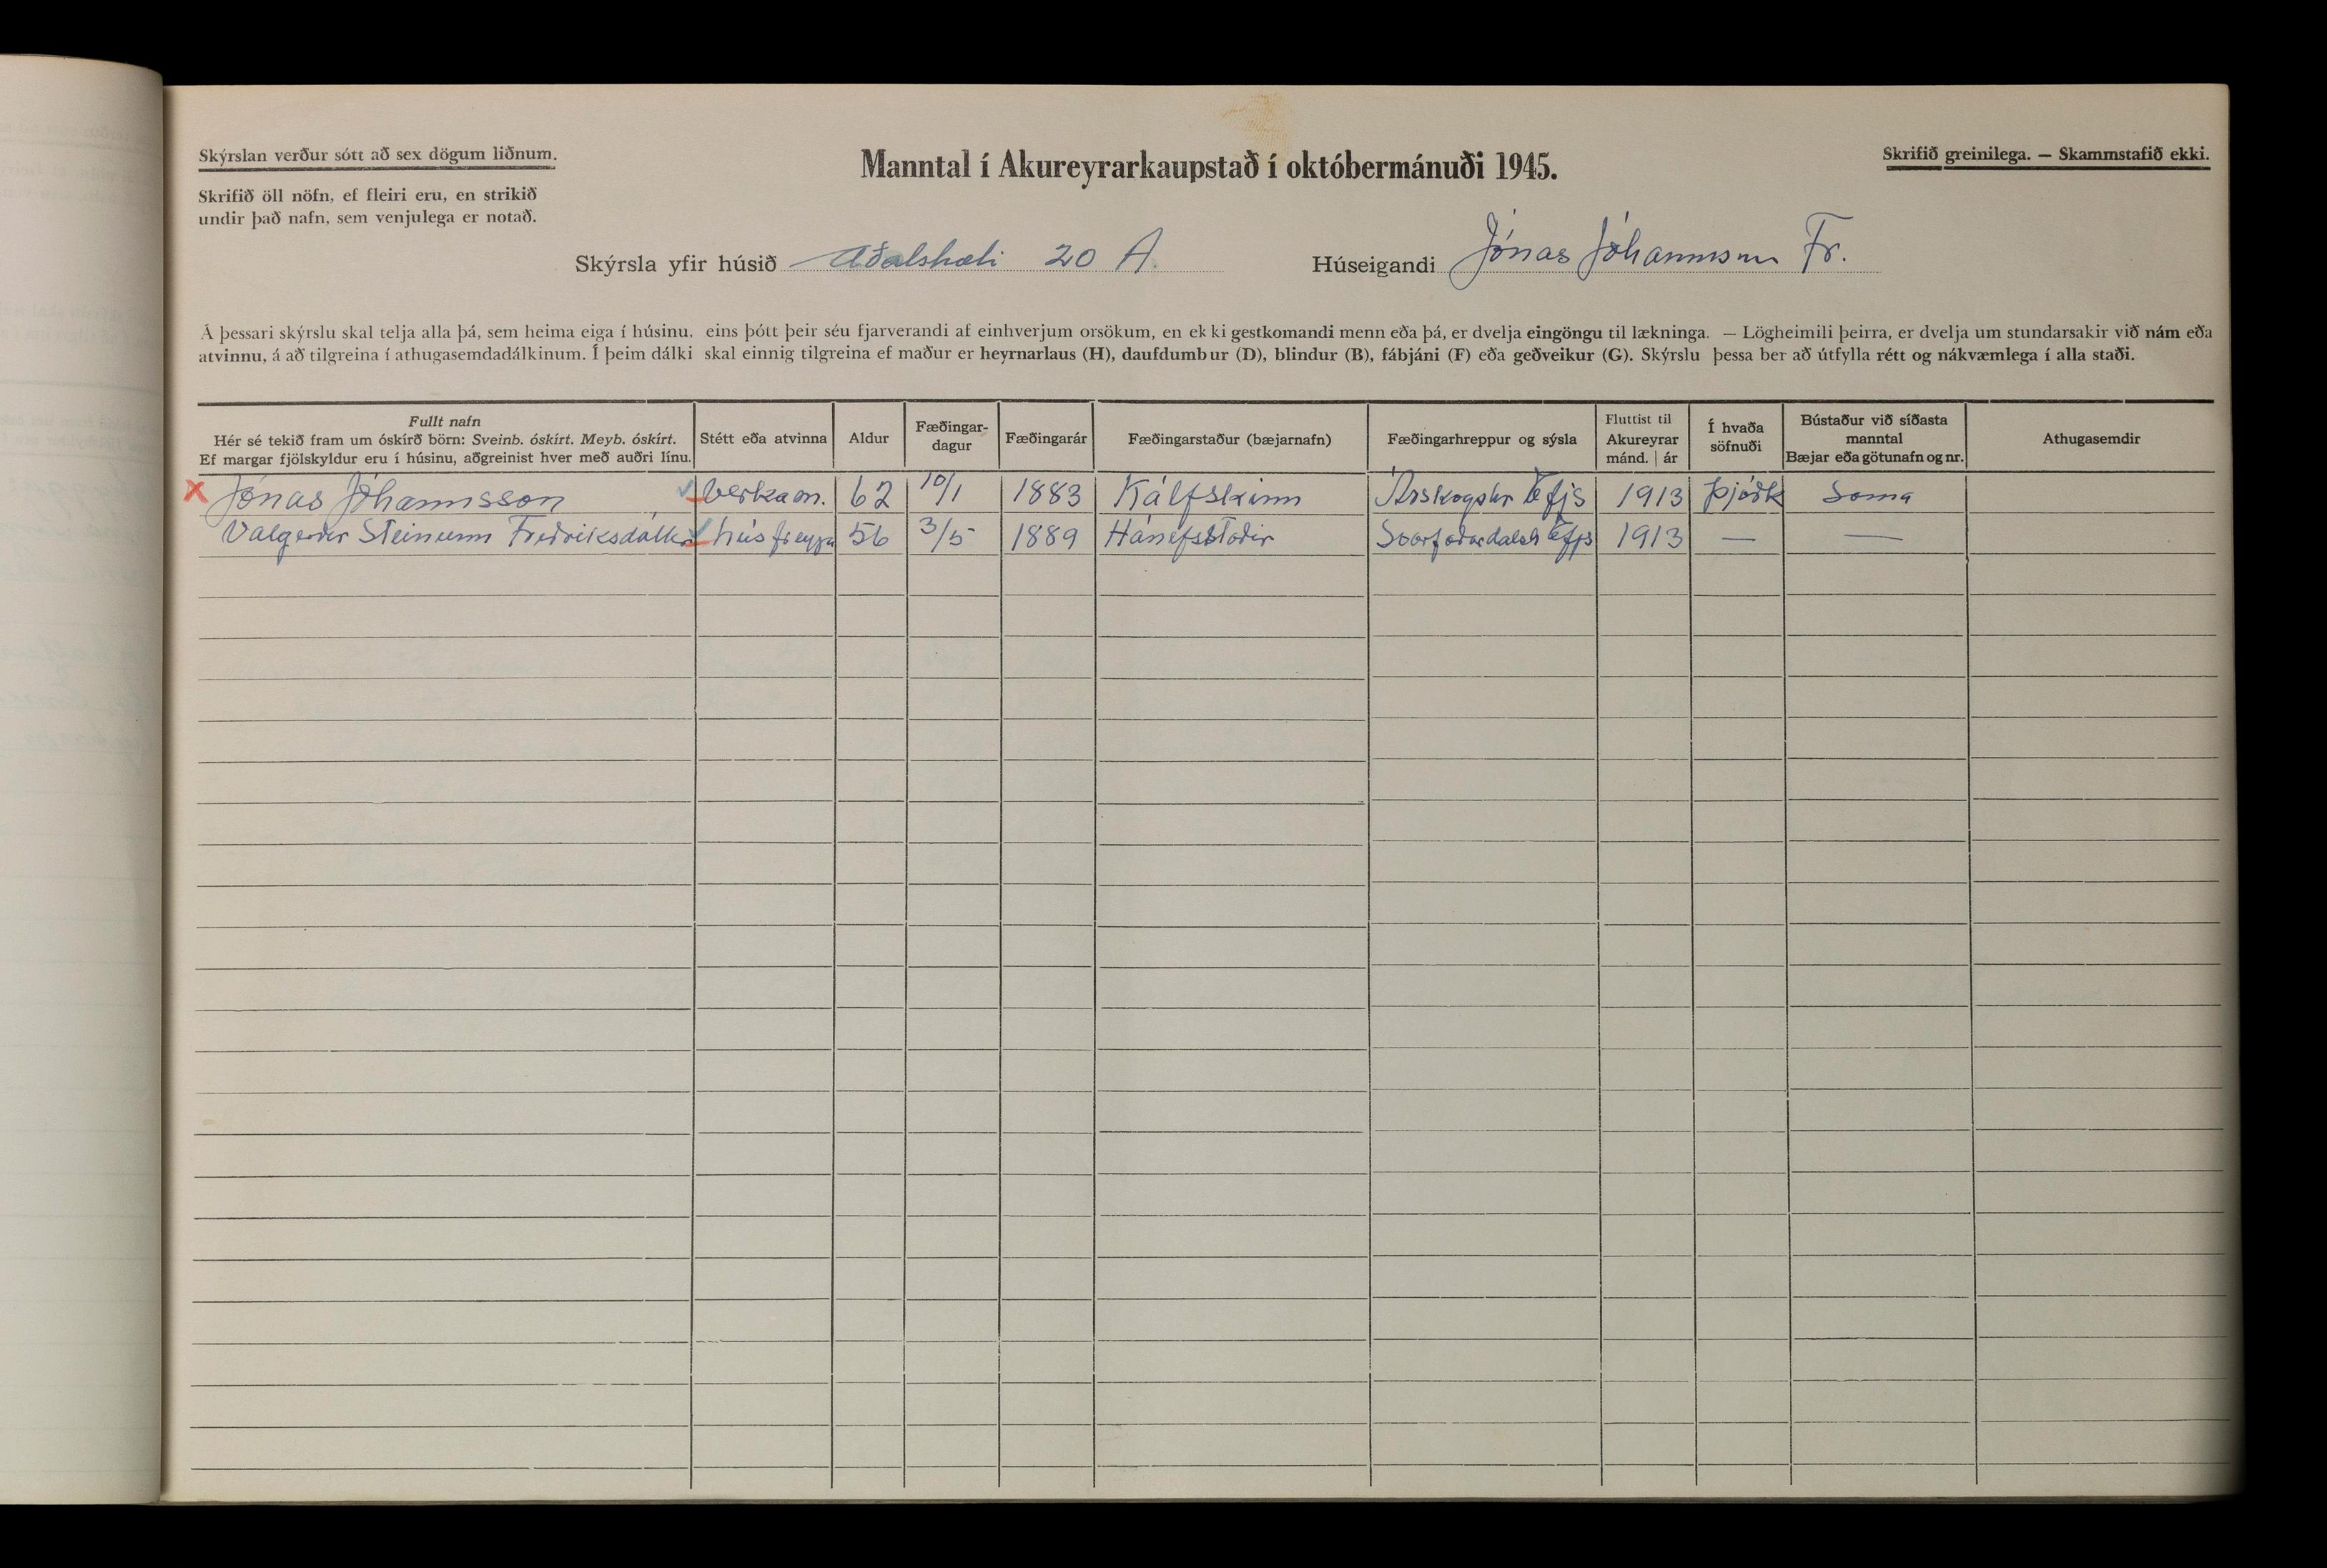 Skýrslan verður sótt að sex dögum liðnum.
Skrifið öll nöfn, ef fleiri eru, en strikið
undir það nafn, sem venjulega er notað.
Manntal í Akureyrarkaupstað í októbermánuði 1945.
Skrifið greinilega. — Skammstafið ekki.
Skýrsla yfir húsið Aðalstræti 20 A. Húseigandi Jónas Jóhannsson Fr.
Á þessari skýrslu skal telja alla þá, sem heima eiga í húsinu, eins þótt þeir séu fjarverandi af einhverjum orsökum, en ekki gestkomandi menn eða þá, er dvelja eingöngu til lækninga. — Lögheimili þeirra, er dvelja um stundarsakir við nám eða
atvinnu, á að tilgreina í athugasemdadálkinum. Í þeim dálki skal einnig tilgreina ef maður er heyrnarlaus (H), daufdumbur (D), blindur (B), fábjáni (F) eða geðveikur (G). Skýrslu þessa ber að útfylla rétt og nákvæmlega í alla staði.
Fullt nafn
Hér sé tekið fram um óskírð börn: Sveinb. óskírt. Meyb. óskírt.
Ef margar fjölskyldur eru í húsinu, aðgreinist hver með auðri línu.
Stétt eða atvinna
Aldur
Fæðingar-
dagur
Fæðingarár
Fæðingarstaður (bæjarnafn)
Fæðingarhreppur og sýsla
Fluttist til
Akureyrar
mánd. | ár
Í hvaða
söfnuði
Bústaður við síðasta
manntal
Bæjar eða götunafn og nr.
Athugasemdir
x Jónas Jóhannsson verkam. 62 10/1 1883 Kálfskinn Árskogshr Efjs 1913 Þjóðk Sama
Valgerður Steinunn Friðriksdóttir húsfreyja 56 3/5 1889 Hánefsstaðir Svarfaðardalsh Efjs 1913 — —